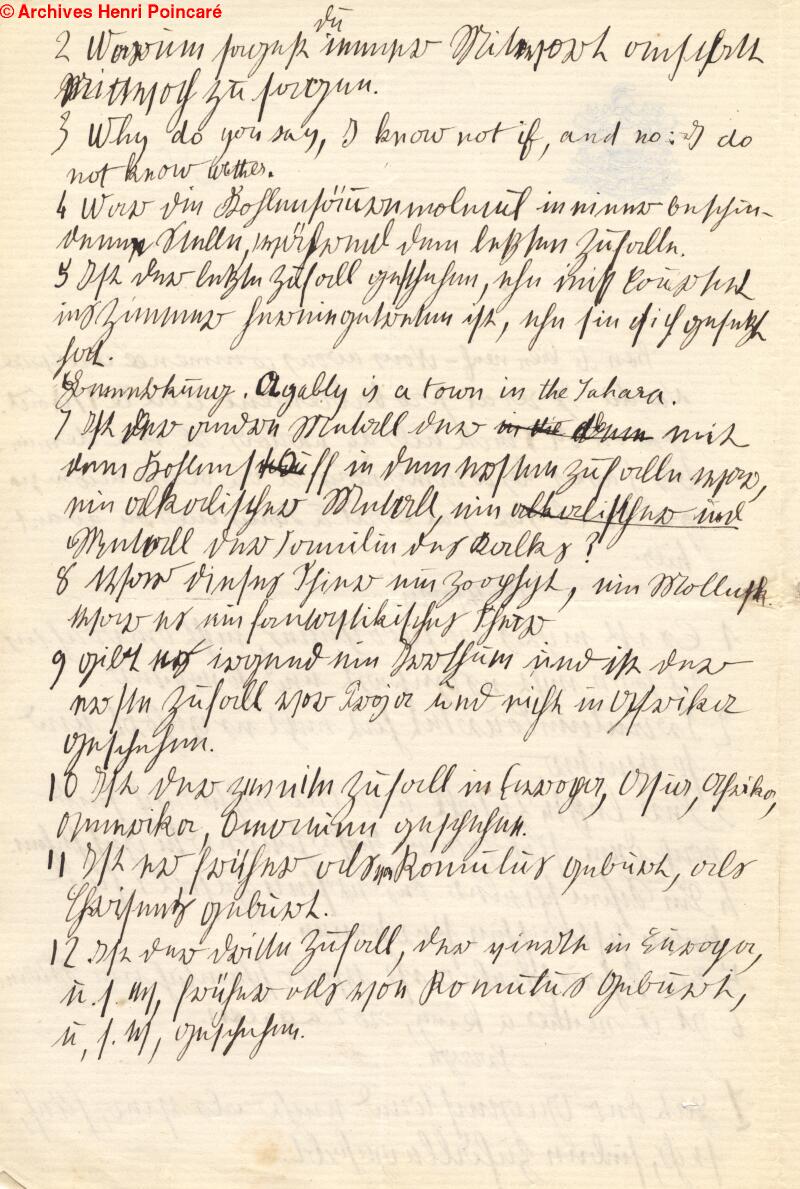 © Archives Henri Poincaré
du
2 Warum sagest immer Mitwort anstatt
Mittwoch zu sagen.
3 Why do you say, I know not if, and no: I do
not know wether.
4 War die Kohlensäuremolecul in einer beschie-
denen Stelle, während dem letzten Zufalle.
5 Ist der letzte Zufall geschehen, ehe
ins Zimmer hereingetreten ist, ehe sie sich gesetzt
hat.
Bemerkung. Agably is a town in the Sahara.
7 Ist der andere Metall der in die dem mit
dem Kohlenstoff in dem ersten Zufalle war,
ein alkalischer Metall, ein alkalischer und
Metall der Familie des Kalks?
8 War dieses Thier ein Zoophyt, ein Mollusk.
War es ein fantastikisches Thier
9 Gibt es irgend ein Irrthum und ist der
erste Zufall vor Troja und nicht in Afrika
geschehen.
10 Ist der zweite Zufall in Europa, Asia, Afrika,
Amerika, Oceanien geschehen.
11 Ist er früher als von Romulus geburt, als
Christus geburt.
12 Ist der dritte Zufall, der vierte in Europa,
u. s. w, früher als von Romulus Geburt,
u, s. w, geschehen.